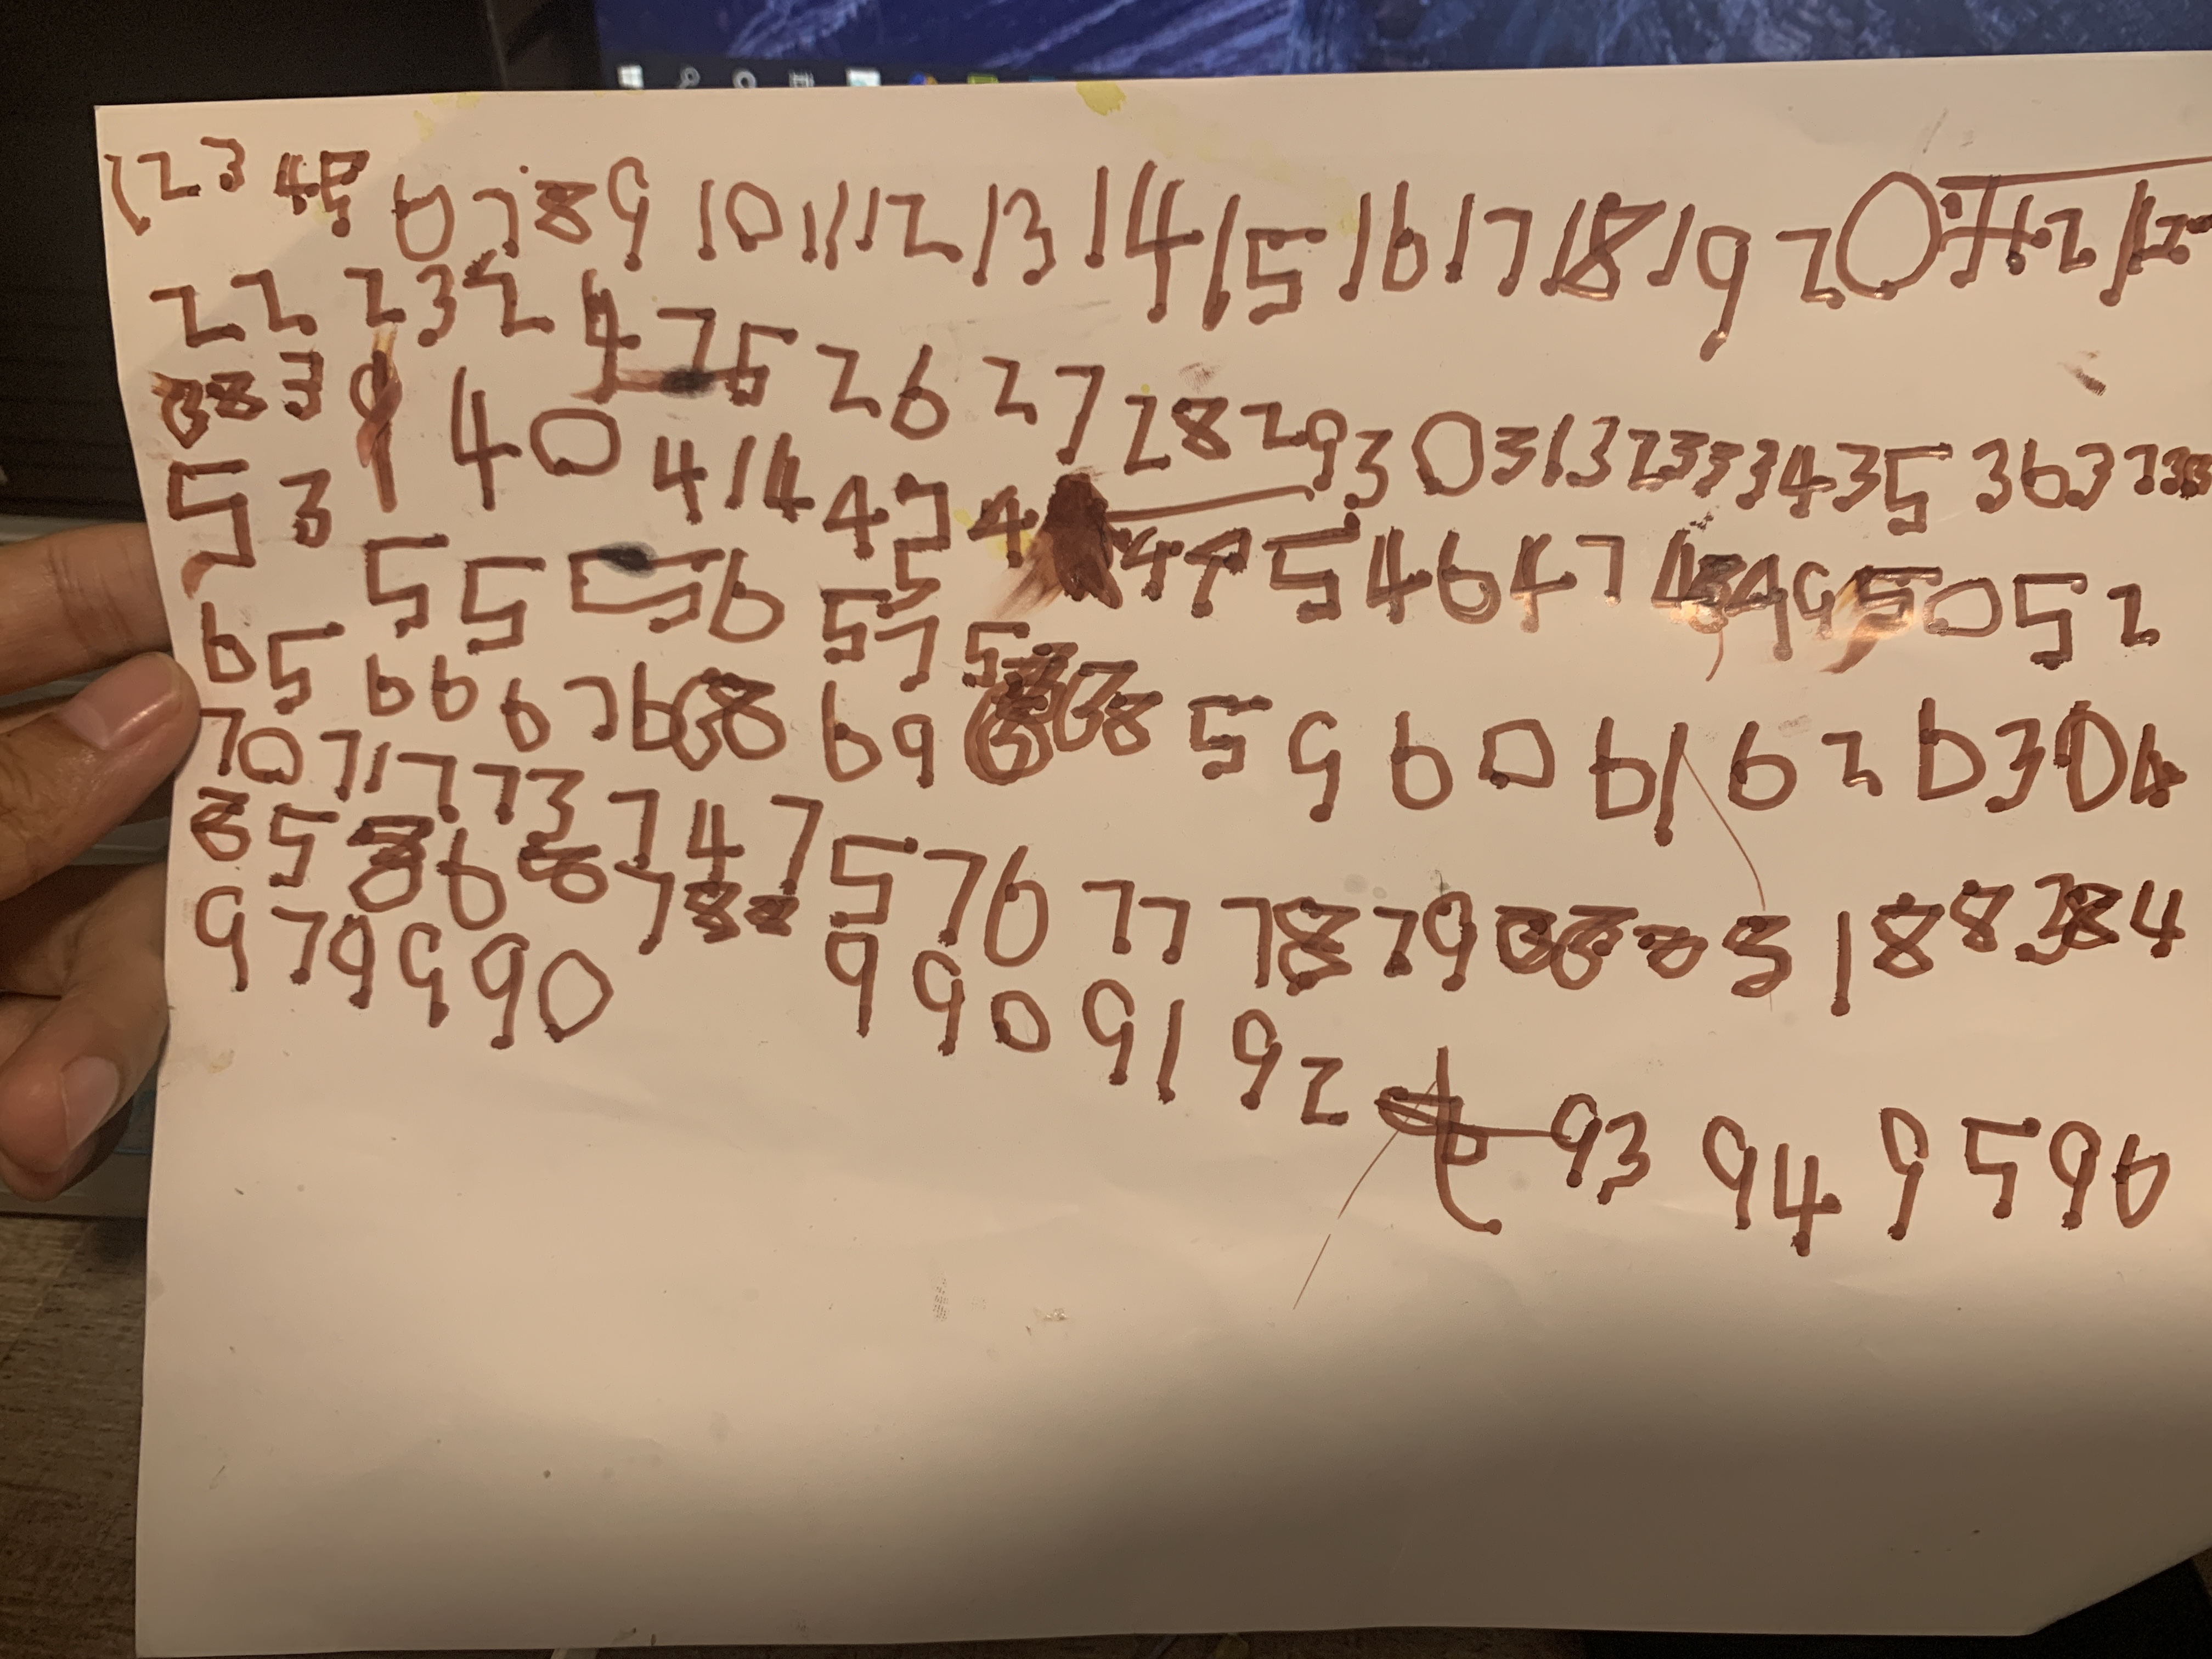 1 2 3 4 5 6 7 8 9 10 11 12 13 14 15 16 17 18 19 20 21
22 23 24 25 26 27 28 29 30 31 32 33 34 35 36 37 38
38 39 40 41 4 45 4 44 45 46 47 48 49 50 52
53 55 5 56 57 58 59 60 61 62 63 64
65 66 67 68 69
70 71 7 73 74 75 76 77 78 79 80 81 88 83 84
85 86 8 7 88 9 90 91 92 93 94 95 96
97 99 9 90